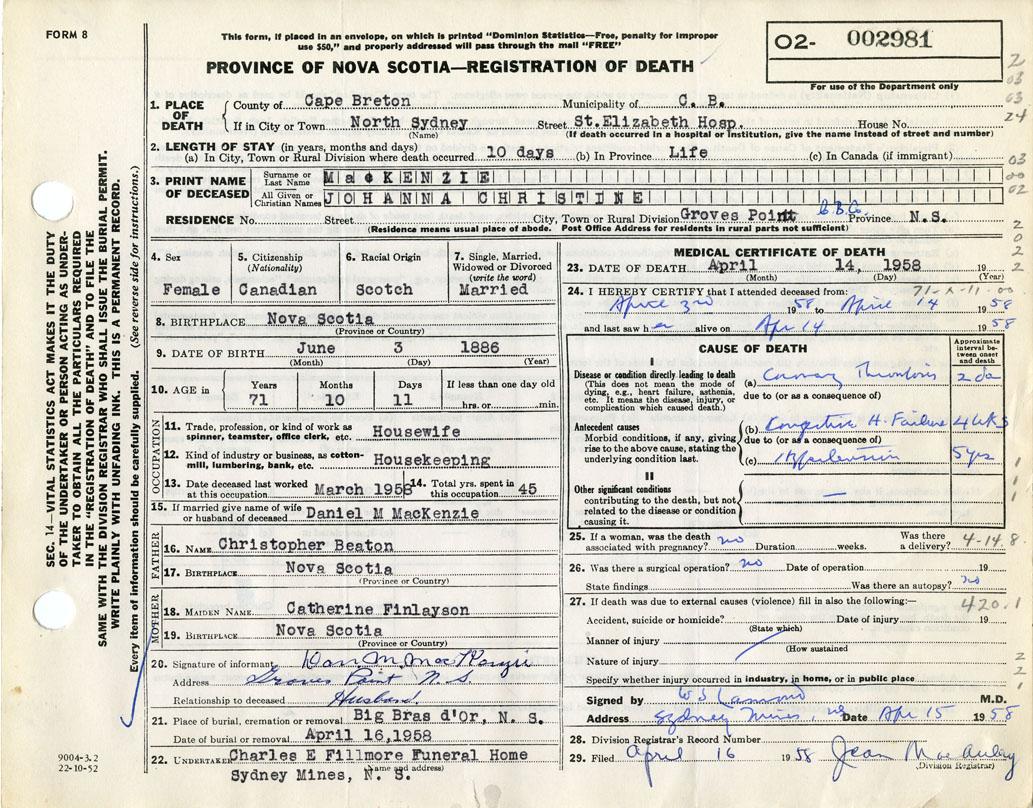 FORM 8
This form, if placed in an envelope, on which is printed "Dominion Statistics—Free, penalty for improper
use $50," and properly addressed will pass through the mail "FREE"
O2- 002981
PROVINCE OF NOVA SCOTIA—REGISTRATION OF DEATH
For use of the Department only
2
03
63
24
03
00
02
2
0
2
2
SEC. 14—VITAL STATISTICS ACT MAKES IT THE DUTY
OF THE UNDERTAKER OR PERSON ACTING AS UNDER-
TAKER TO OBTAIN ALL THE PARTICULARS REQUIRED
IN THE "REGISTRATION OF DEATH" AND TO FILE THE
SAME WITH THE DIVISION REGISTRAR WHO SHALL ISSUE THE BURIAL PERMIT.
WRITE PLAINLY WITH UNFADING INK. THIS IS A PERMANENT RECORD.
Every item of information should be carefully supplied. (See reverse side for instructions.)
1. PLACE OF DEATH County of Cape Breton Municipality of C. B.
If in City or Town North Sydney Street St.Elizabeth Hosp. House No.
(Name) (If death occurred in a hospital or institution, give the name instead of street and number)
2. LENGTH OF STAY (in years, months and days)
(a) In City, Town or Rural Division where death occurred 10 days (b) In Province Life (c) In Canada (if immigrant)
3. PRINT NAME OF DECEASED Surname or Last Name MacKENZIE
All Given or Christian Names JOHANNA CHRISTINE
RESIDENCE No. Street City, Town or Rural Division Groves Point C.B.Co. Province N.S.
(Residence means usual place of abode. Post Office Address for residents in rural parts not sufficient)
4. Sex
Female
5. Citizenship (Nationality)
Canadian
6. Racial Origin
Scotch
7. Single, Married, Widowed or Divorced (write the word)
Married
8. BIRTHPLACE Nova Scotia
(Province or Country)
9. DATE OF BIRTH June 3 1886
(Month) (Day) (Year)
10. AGE in Years 71 Months 10 Days 11 If less than one day old hrs. or min.
OCCUPATION
11. Trade, profession, or kind of work as spinner, teamster, office clerk, etc. Housewife
12. Kind of industry or business, as cotton-mill, lumbering, bank, etc. Housekeeping
13. Date deceased last worked at this occupation March 1958
14. Total yrs. spent in this occupation 45
15. If married give name of wife or husband of deceased Daniel M MacKenzie
FATHER
16. NAME Christopher Beaton
17. BIRTHPLACE Nova Scotia
(Province or Country)
MOTHER
18. MAIDEN NAME Catherine Finlayson
19. BIRTHPLACE Nova Scotia
(Province or Country)
20. Signature of informant Dan M. MacKenzie
Address Groves Point N S
Relationship to deceased Husband.
21. Place of burial, cremation or removal Big Bras d'Or, N. S.
Date of burial or removal April 16,1958
22. UNDERTAKER Charles E Fillmore Funeral Home
(Name and address)
Sydney Mines, N. S.
9004-3.2
22-10-52
MEDICAL CERTIFICATE OF DEATH
23. DATE OF DEATH April 14, 1958 19
(Month) (Day) (Year)
24. I HEREBY CERTIFY that I attended deceased from:
April 3rd 1958 to April 14 1958
and last saw her alive on Apr 14 1958
CAUSE OF DEATH
Approximate interval between onset and death
I
Disease or condition directly leading to death
(This does not mean the mode of dying, e.g., heart failure, asthenia, etc. It means the disease, injury, or complication which caused death.)
(a) Coronary Thrombosis 2 da
due to (or as a consequence of)
Antecedent causes
Morbid conditions, if any, giving rise to the above cause, stating the underlying condition last.
(b) Congestive H. Failure 4 wks
due to (or as a consequence of)
(c) Hypertension 5 yrs
II
Other significant conditions
contributing to the death, but not related to the disease or condition causing it.
—
25. If a woman, was the death associated with pregnancy? no Duration weeks. Was there a delivery?
4-14.8.
26. Was there a surgical operation? no Date of operation 19
State findings Was there an autopsy? no
27. If death was due to external causes (violence) fill in also the following:—
420.1
Accident, suicide or homicide? Date of injury 19
(State which)
Manner of injury
(How sustained
Nature of injury
Specify whether injury occurred in industry, in home, or in public place
Signed by M.D.
Address Sydney Mines, NS Date Apr 15 1958
28. Division Registrar's Record Number
29. Filed April 16 1958 Jean MacAulay
(Division Registrar)